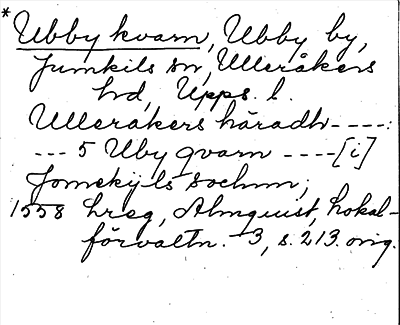 * Ubby kvarn, Ubby by,
Jumkils sn, Ulleråkers
hd, Upps. l.
Ulleråkers häradh ----:
--- 5 Uby qvarn ----[i]
Jomckijls sochnn;
1558 hreg, Almquist, Lokal-
förvaltn. 3, s. 213. orig.